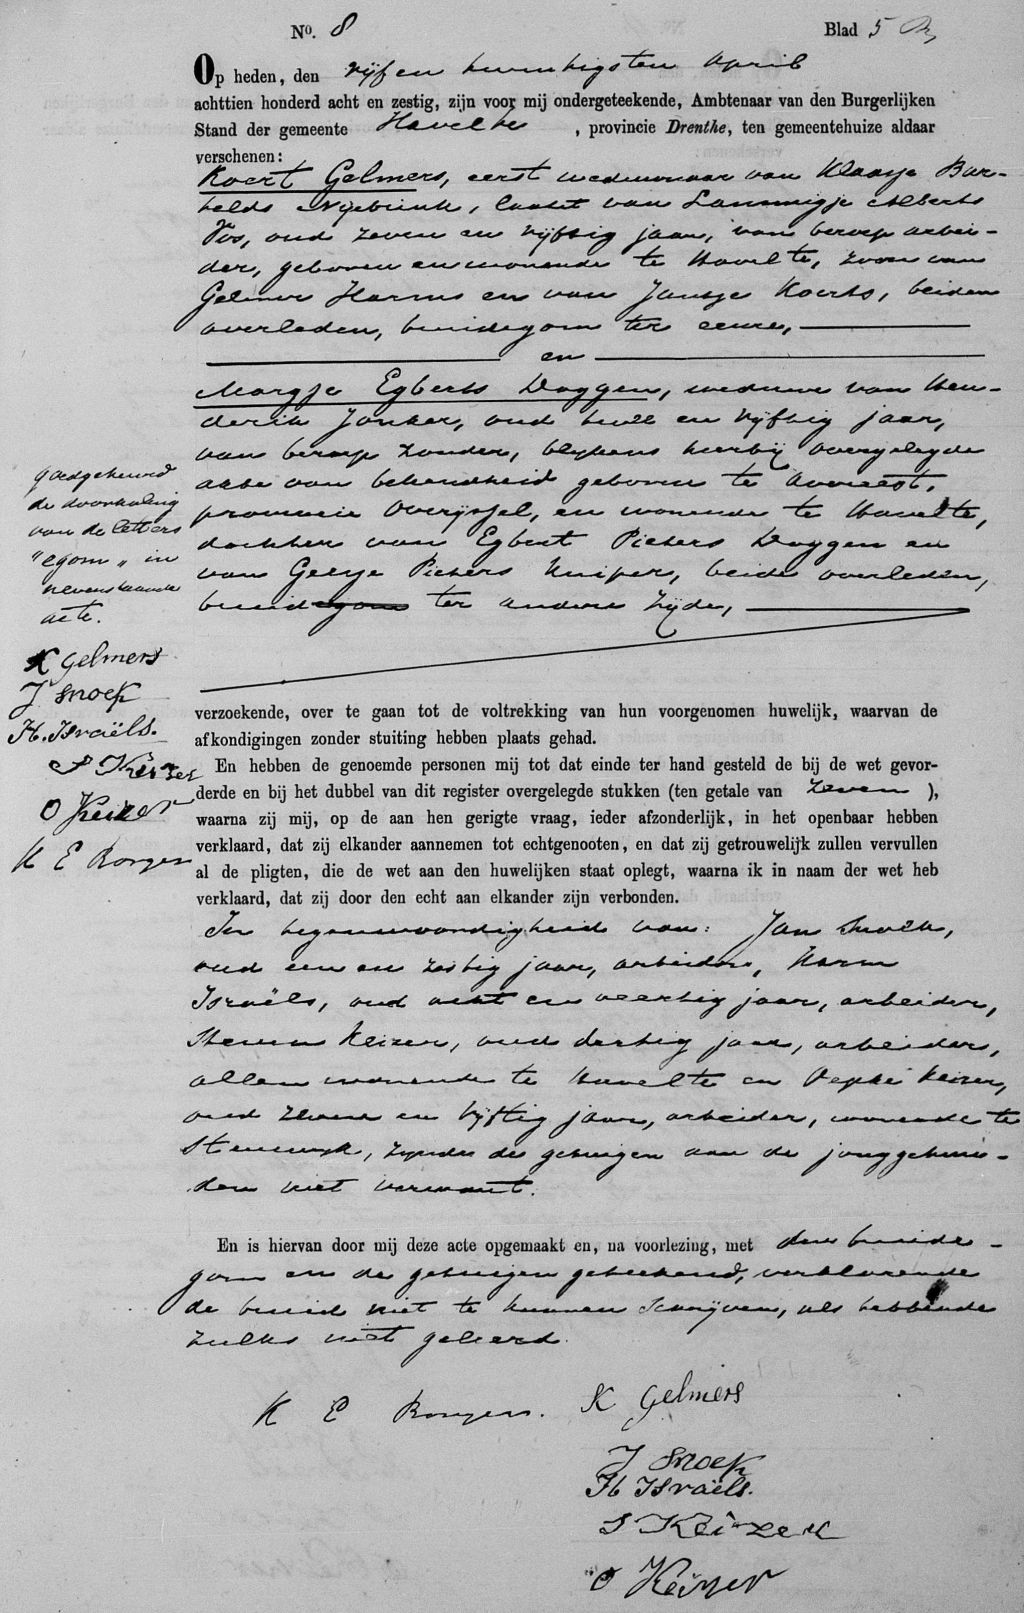 No. 8
Blad 5
Op heden, den vijf en twintigsten April
achttien honderd acht en zestig, zijn voor mij ondergeteekende, Ambtenaar van den Burgerlijken
Stand der gemeente Havelte , provincie Drenthe, ten gemeentehuize aldaar
verschenen:
Koert Gelmers, eerst weduwenaar van Klaasje Bar-
telds Nijebrink, laatst van Lammigje Alberts
Vos, oud zeven en vijftig jaar, van beroep arbei-
der, geboren en wonende te Havelte, zoon van
Gelmer Harms en van Jantje Koerts, beiden
overleden, bruidegom ter eenre,
en
Margje Egberts Daggen, weduwe van Hen-
derik Jonker, oud twee en vijftig jaar,
van beroep zonder, blijkens hierbij overgelegde
acte van bekendheid geboren te Avereest,
provincie Overijssel, en wonende te Havelte,
dochter van Egbert Pieters Daggen en
van Geesje Pieters Kuiper, beide overleden,
bruidegom ter andere zijde,
goedgekeurd
de doorhaling
van de letters
"egom" in
nevenstaande
acte.
K Gelmers
J Snoek
H. Israëls.
S Keizer
O Keizer
K E Ronger
verzoekende, over te gaan tot de voltrekking van hun voorgenomen huwelijk, waarvan de
afkondigingen zonder stuiting hebben plaats gehad.
En hebben de genoemde personen mij tot dat einde ter hand gesteld de bij de wet gevor-
derde en bij het dubbel van dit register overgelegde stukken (ten getale van zeven ),
waarna zij mij, op de aan hen gerigte vraag, ieder afzonderlijk, in het openbaar hebben
verklaard, dat zij elkander aannemen tot echtgenooten, en dat zij getrouwelijk zullen vervullen
al de pligten, die de wet aan den huwelijken staat oplegt, waarna ik in naam der wet heb
verklaard, dat zij door den echt aan elkander zijn verbonden.
In tegenwoordigheid van: Jan Snoek,
oud een en zestig jaar, arbeider, Harm
Israëls, oud acht en veertig jaar, arbeider,
Steven Keizer, oud dertig jaar, arbeider,
allen wonende te Havelte en Oepke Keizer,
oud zeven en vijftig jaar, arbeider, wonende te
Steenwijk, zijnde de getuigen aan de jonggehuw-
den niet vermant.
En is hiervan door mij deze acte opgemaakt en, na voorlezing, met den bruide-
gom en de getuigen geteekend, verklarende
de bruid niet te kunnen schrijven, als hebbende
zulks niet geleerd.
K E Rongen.
K Gelmers
J Snoek
H Israëls.
S Keizer
O Keizer